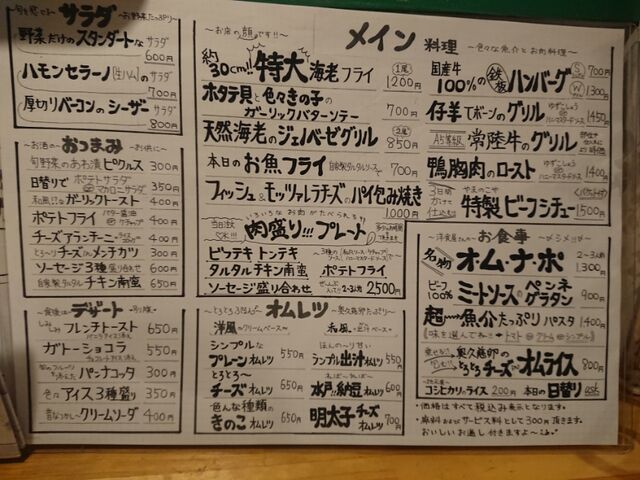 サラダ
野菜だけのスタンダードなサラダ
600円
ハモンセラーノ(生ハム)のサラダ
700円
厚切りベーコンのシーザーサラダ
800円
おつまみ
旬野菜のあお漬ピクルス 300円
日替りで ポテトサラダ マカロニサラダ 350円
和風ガーリックトースト 400円
ポテトフライ バター醤油 ケチャップ 400円
チーズアランチーニ 400円
とろ〜りチーズinメンチカツ 300円
ソーセージ3種盛り合わせ 600円
自家製タルタルチキン南蛮 650円
デザート
フレンチトースト 650円
ガトーショコラ 550円
パンナコッタ 300円
色々アイス3種盛り 350円
昔なつかし〜クリームソーダ 400円
〜お店の顔です!!〜
メイン料理 〜色々な魚介とお肉料理〜
約30cm!!特大海老フライ 1尾 1200円
ホタテ貝と色々きの子の
ガーリックバターソテー 700円
天然海老のジェノベーゼグリル 2尾 850円
本日のお魚フライ 自家製タルタルソースで 700円
フィッシュ&モッツァレラチーズのパイ包み焼き
1,000円
肉盛り!!!プレート
ビフテキ トンテキ
タルタルチキン南蛮 ポテトフライ
ソーセージ盛り合わせ 2〜3人前 2,500円
国産牛100%の鉄板ハンバーグ S 700円 W 1300円
仔羊てボーンのグリル 1450円
A5等級 常陸牛のグリル
鴨胸肉のロースト 1400円
3日間かけて仕込む 特製ビーフシチュー 1500円
オムレツ
洋風〜クリームベース〜
シンプルなプレーンオムレツ 550円
とろとろ〜チーズオムレツ 650円
色んな種類のきのこオムレツ 650円
和風
ほんの〜り甘い ランプル出汁オムレツ 550円
水戸!!納豆オムレツ 600円
明太子チーズオムレツ 700円
〜洋食屋さんの〜 お食事
名物 オムナポ 2〜3人前 1,300円
ビーフ100% ミートソースのペンネグラタン 900円
超…魚介たっぷりパスタ 1400円
味を選んでネ♪ トマト シンプル
奥久慈卵のとろとろチーズinオムライス 800円
コシヒカリのライス 200円 本日の日替り ask
・価格はすべて税込み表示となります。
・席料およびサービス料として300円頂きます。
おいしいお通し付きますよ〜